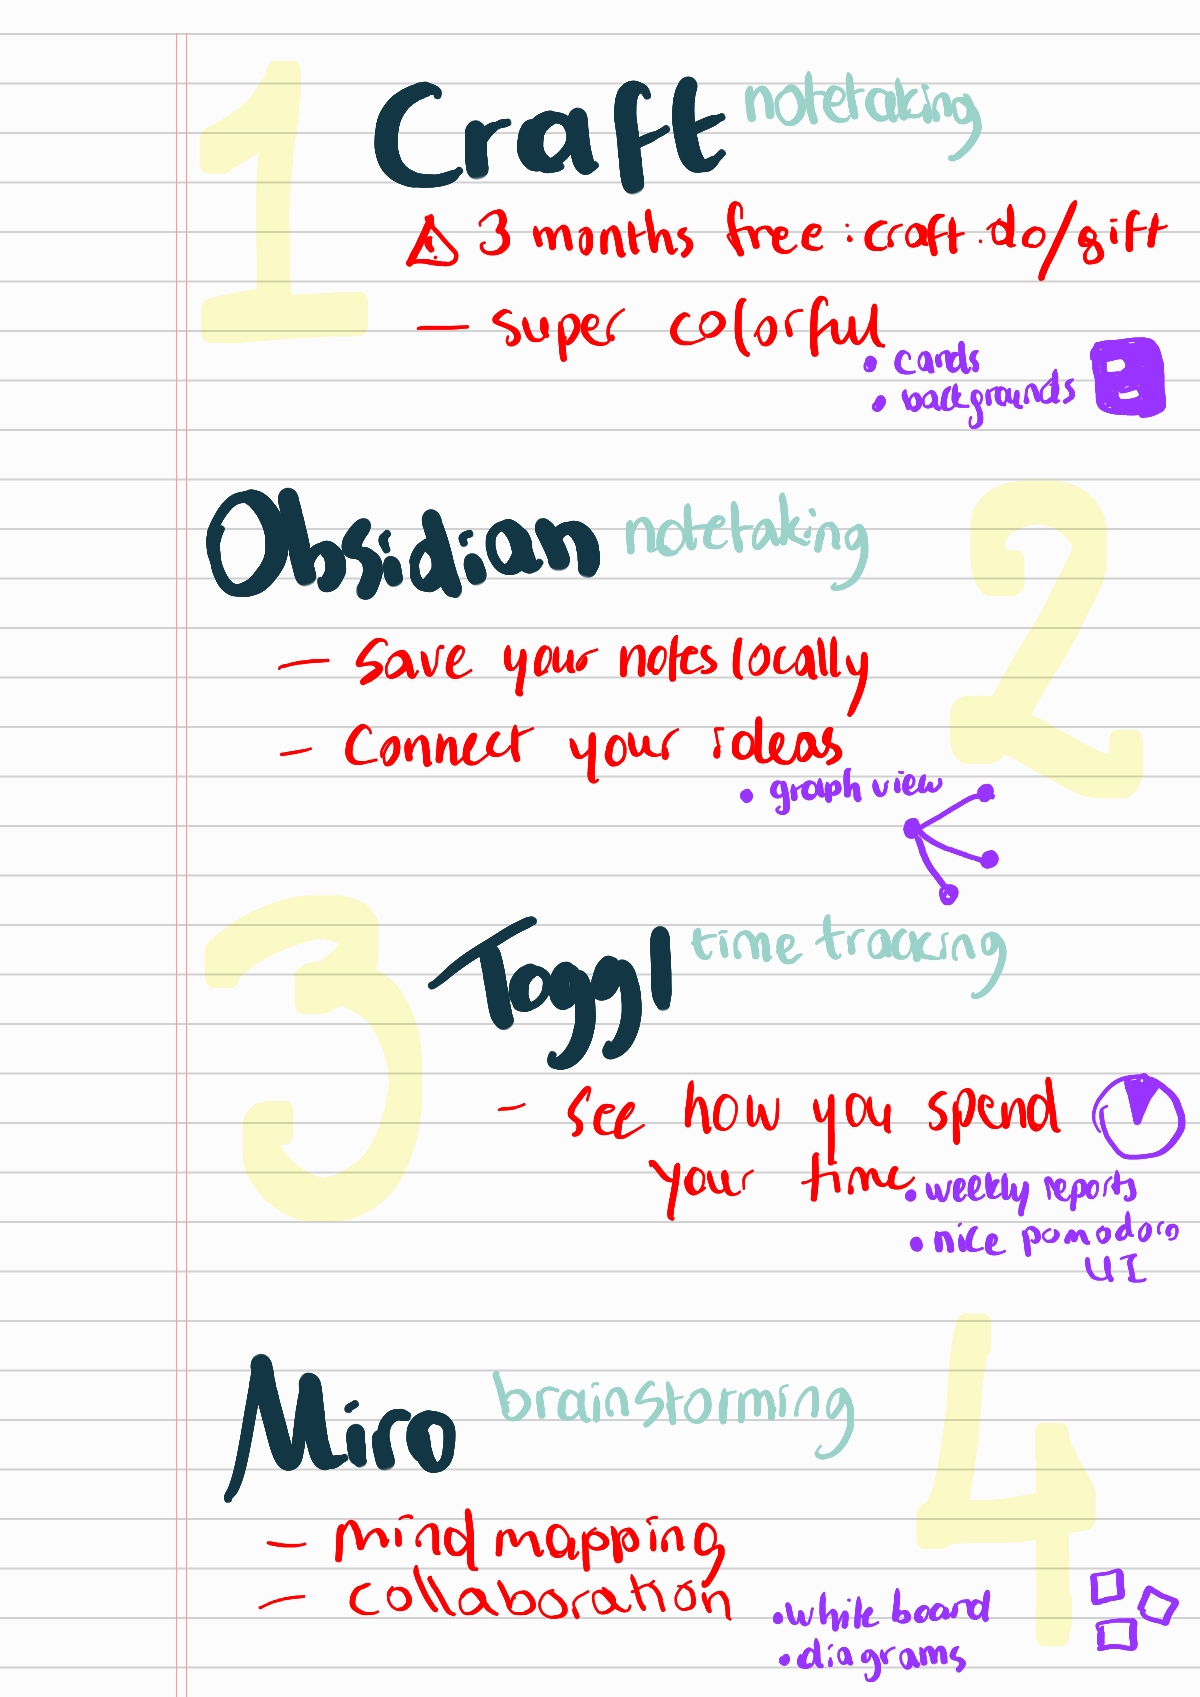 1
Craft notetaking
⚠ 3 months free : craft.do/gift
— super colorful
• cards
• backgrounds
2
Obsidian notetaking
— Save your notes locally
— Connect your ideas
• graph view
3
Toggl time tracking
- see how you spend
your time
• weekly reports
• nice pomodoro
UI
4
Miro brainstorming
— mind mapping
— collaboration
• white board
• diagrams